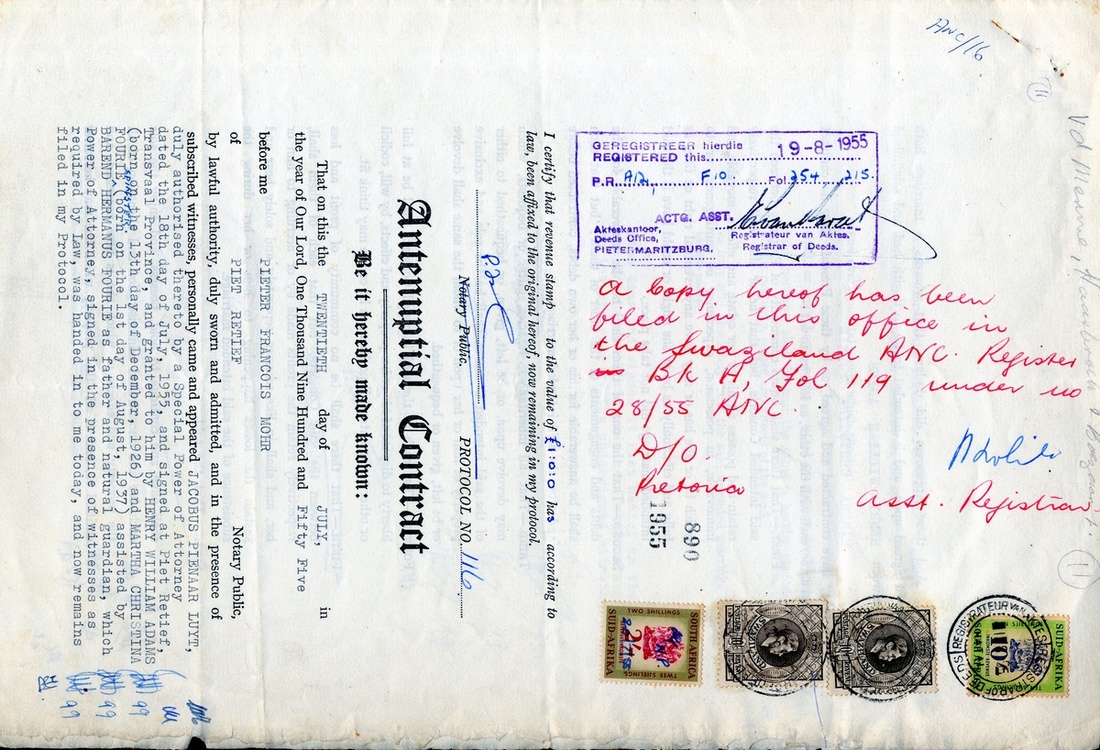 ANC/16
11
GEREGISTREER hierdie
REGISTERED this 19-8-1955
P.R. A/2, F10. Fol 254 215.
ACTG. ASST.
Akteskantoor,
Deeds Office,
PIETERMARITZBURG,
Registrateur van Aktes.
Registrar of Deeds.
A Copy hereof has been
filed in this office in
the Swaziland ANC. Register
Bk A, Fol 119 under no
28/55 ANC.
D/O.
Pretoria
Asst. Registrar.
890
1955
11
I certify that revenue stamp to the value of £1:0:0 has according to
law, been affixed to the original hereof, now remaining in my protocol.
Notary Public. PROTOCOL NO. 116
Antenuptial Contract
Be it hereby made known:
That on this the TWENTIETH day of JULY, in
the year of Our Lord, One Thousand Nine Hundred and Fifty Five
before me PIETER FRANCOIS MOHR
of PIET RETIEF Notary Public,
by lawful authority, duly sworn and admitted, and in the presence of
subscribed witnesses, personally came and appeared JACOBUS PIENAAR LUYT,
duly authorised thereto by a Special Power of Attorney
dated the 18th day of July, 1955, and signed at Piet Retief,
Transvaal Province, and granted to him by HENRY WILLIAM ADAMS
(born on the 13th day of December, 1926) and MARTHA CHRISTINA
FOURIE (born on the 1st day of August, 1937) assisted by
BAREND HERMANUS FOURIE as father and natural guardian, which
Power of Attorney, signed in the presence of witnesses as
required by Law, was handed in to me today, and now remains
filed in my Protocol.
SOUTH AFRICA
TWO SHILLINGS
2/-
TWEE SJIELINGS
SUID-AFRIKA
REGISTRATEUR VAN AKTES
REGISTRAR OF DEEDS
SUID-AFRIKA
10/-